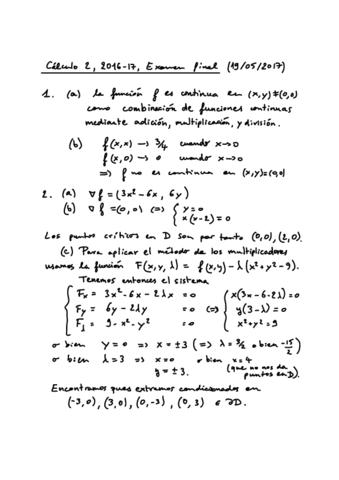 Cálculo 2, 2016-17, Examen final (19/05/2017)
1. (a) la función f es continua en (x,y) ≠ (0,0)
como combinación de funciones continuas
mediante adición, multiplicación, y división.
(b) f(x,x) → 3/4 cuando x→0
f(x,0) → 0 cuando x→0
⇒ f no es continua en (x,y)=(0,0)
2. (a) ∇f = (3x²-6x, 6y)
(b) ∇f = (0,0) ⇔ { y=0
x(x-2)=0
Los puntos críticos en D son por tanto (0,0), (2,0).
(c) Para aplicar el método de los multiplicadores
usamos la función F(x,y,λ) = f(x,y) - λ(x²+y²-9).
Tenemos entonces el sistema
{ Fx = 3x²-6x-2λx = 0 { x(3x-6-2λ)=0
Fy = 6y-2λy = 0 ⇔ y(3-λ)=0
Fλ = 9-x²-y² = 0 x²+y²=9
o bien y=0 ⇒ x=±3 (⇒ λ=3/2 o bien -15/2)
o bien λ=3 ⇒ x=0 o bien x=4
y=±3. (que no nos da puntos en D).
Encontramos pues extremos condicionados en
(-3,0), (3,0), (0,-3), (0,3) ∈ ∂D.